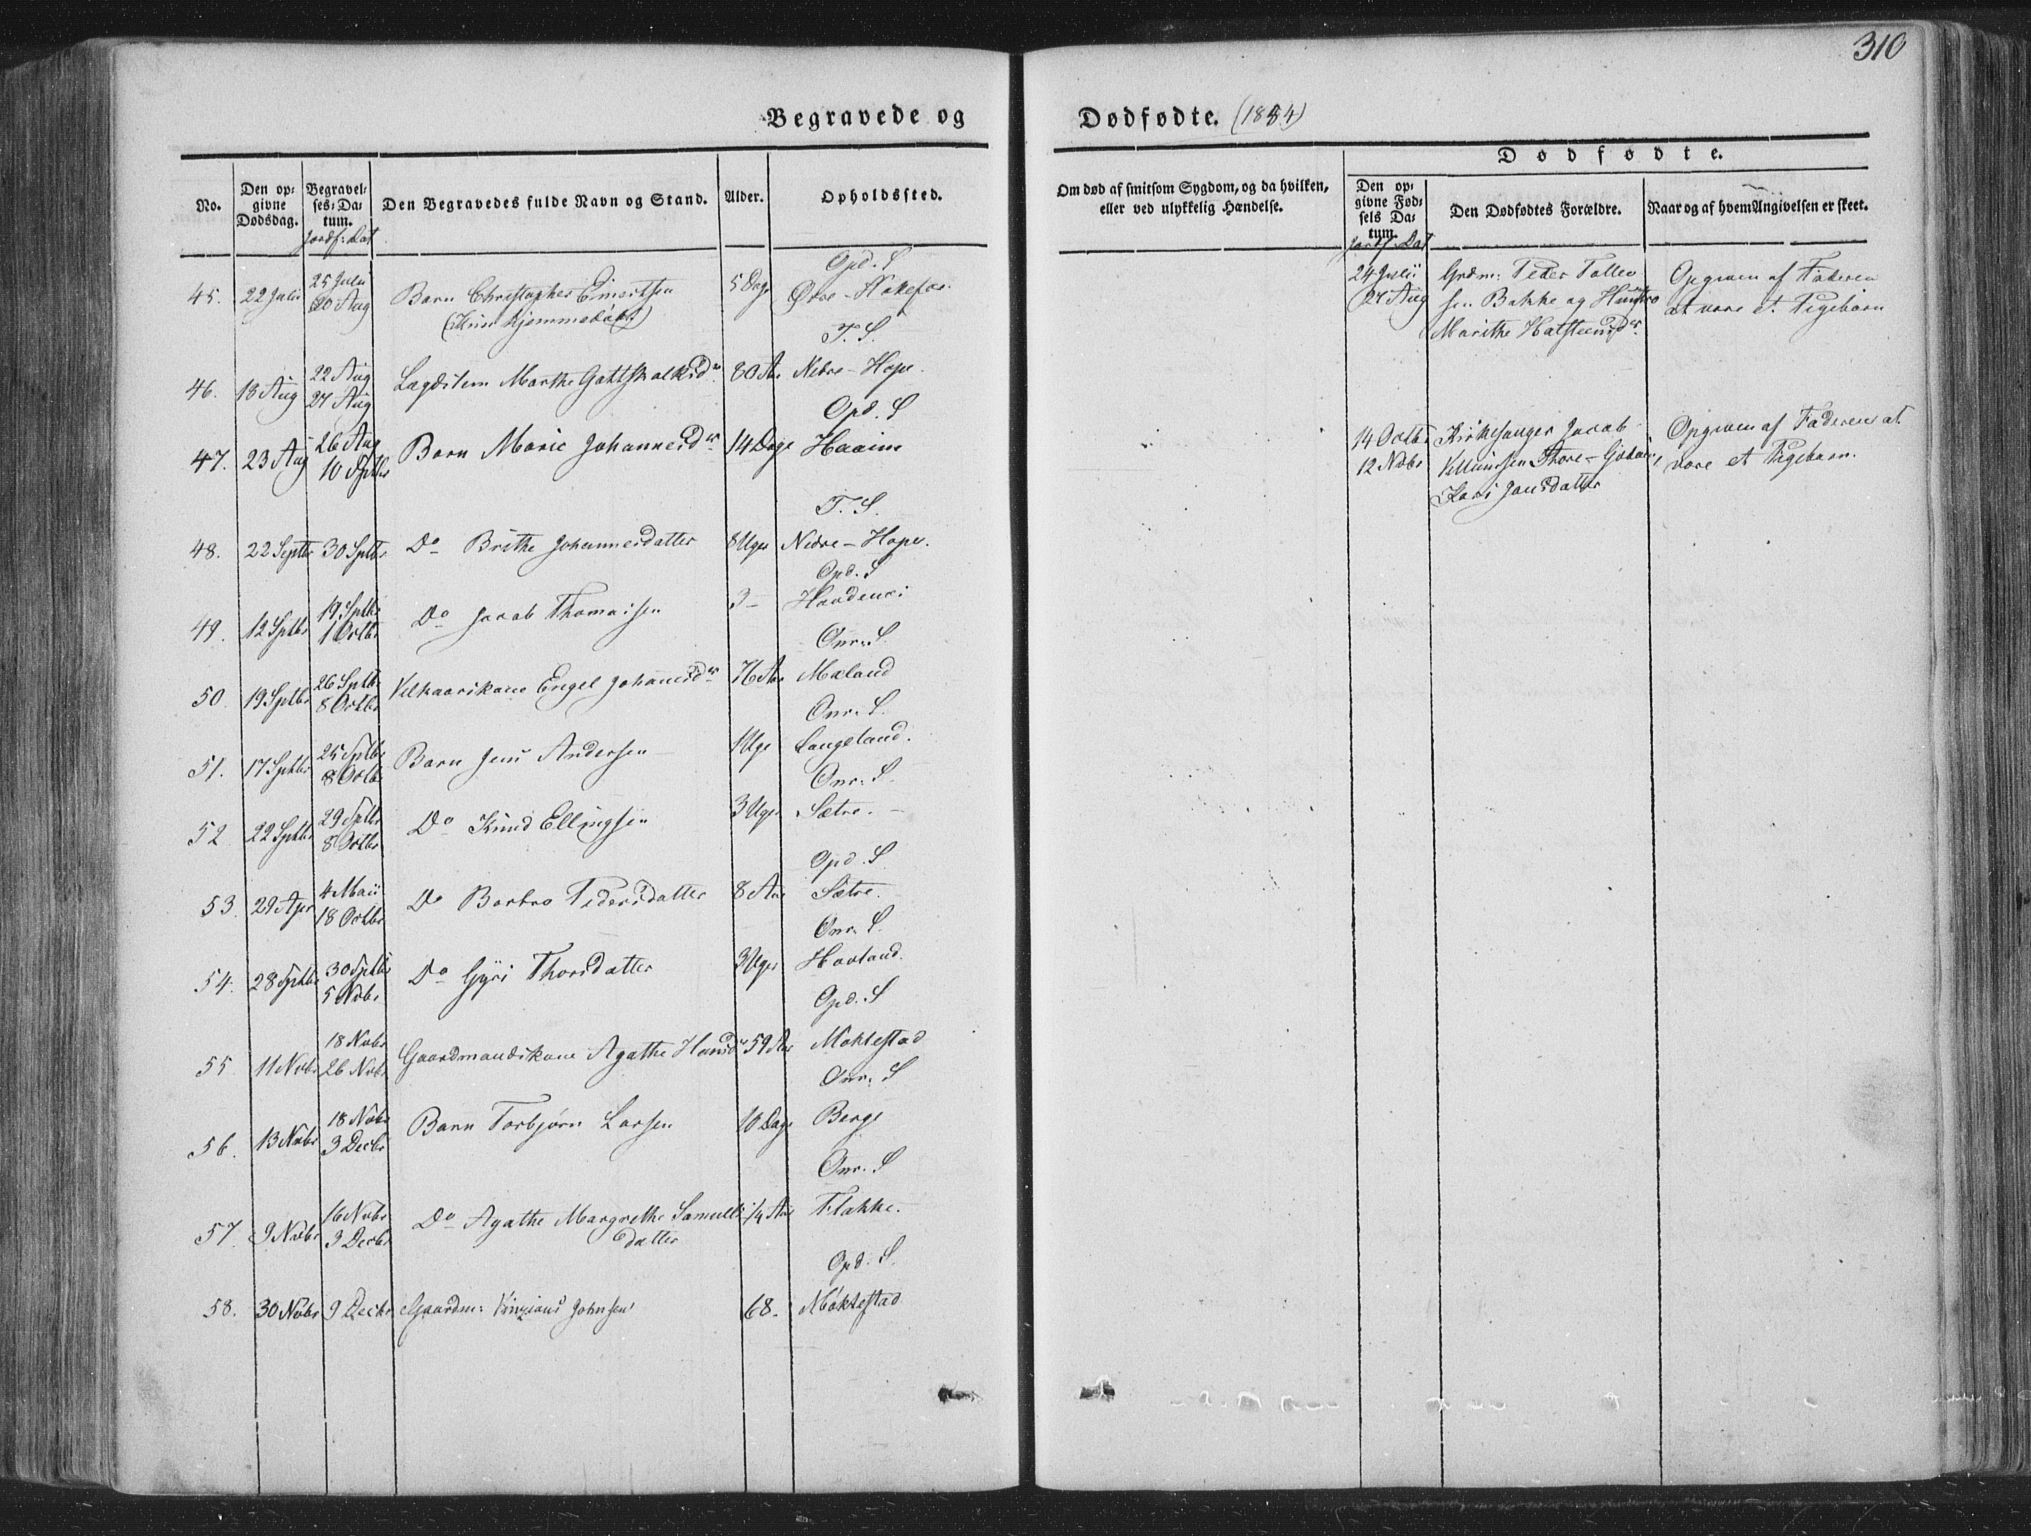 310
Begravede og Dødfødte. (1854)
No.
Den opgivne Dødsdag.
Begravelses-Datum.
Jordf: Dat
Den Begravedes fulde Navn og Stand.
Alder.
Opholdssted.
Om død af smitsom Sygdom, og da hvilken, eller ved ulykkelig Hændelse.
Dødfødte.
Den opgivne Fødsels Datum.
Jordf. Dat
Den Dødfødtes Forældre.
Naar og af hvem Angivelsen er skeet.
Opd. S
45. 22 Julii 25 Julii 20 Aug Barn Christopher Einertsen 5 Dage Øvre-Hakefos
(Kun hjemmedøbt)
T. S.
46. 18 Aug 22 Aug 27 Aug Lægdslem Marthe Gottskalksdr 80 Aar Nedre-Hope.
Opd. S
47. 23 Aug 26 Aug 10 Sptbr Barn Marie Johannesdr 14 Dage Haaim
T. S.
48. 22 Septbr 30 Sptbr Do Brithe Johannesdatter 8 Uger Nedre-Hope.
Opd. S
49. 12 Sptbr 19 Sptbr 1 Octbr Do Jacob Thomassen 3 -
Onr: S.
50. 19 Sptbr 26 Sptbr 8 Octbr Vilkaarskone Engel Johannesdr 76 Aar Mæland
Onr. S.
51. 17 Sptbr 25 Sptbr 8 Octbr Barn Jens Andersen 1 Uge Langeland.
Onr: S.
52 22 Sptbr 29 Sptbr 8 Octbr Do Knud Ellingsen 3 Uger Sætre.
Opd. S
53. 29 Apr 4 Maii 18 Octbr Do Barbro Pedersdatter 8 Aar Sætre.
Onr. S
54. 28 Sptbr 30 Sptbr 5 Nvbr Do Gyri Thorsdatter 3 Uger Hovland.
Opd. S
55 11 Nvbr 18 Nvbr 26 Nvbr Gaardmandskone Agathe Hansdr 59 Aar Moktestad
Onr: S
56. 13 Nvbr 18 Nvbr 3 Decbr Barn Torbjørn Larsen 10 Dage Berge
Onr. S
57. 9 Nvbr 16 Nvbr 3 Decbr Do Agathe Margrethe Samuels 1/4 Aar Flakke.
datter
Opd. S.
58. 30 Nvbr 9 Decbr Gaardm: Johnsen 68. Moktestad
24 Julii
27 Aug
Grdm: Peder Tollev
sen Bakke og Hustro
Marithe Halsteensdr.
Opgiven af Faderen
at være et Pigebarn
14 Octbr
12 Nvbr
Kirkesanger Jacob
Kari Jansdatter
Opgiven af Faderen at
være et Pigebarn.